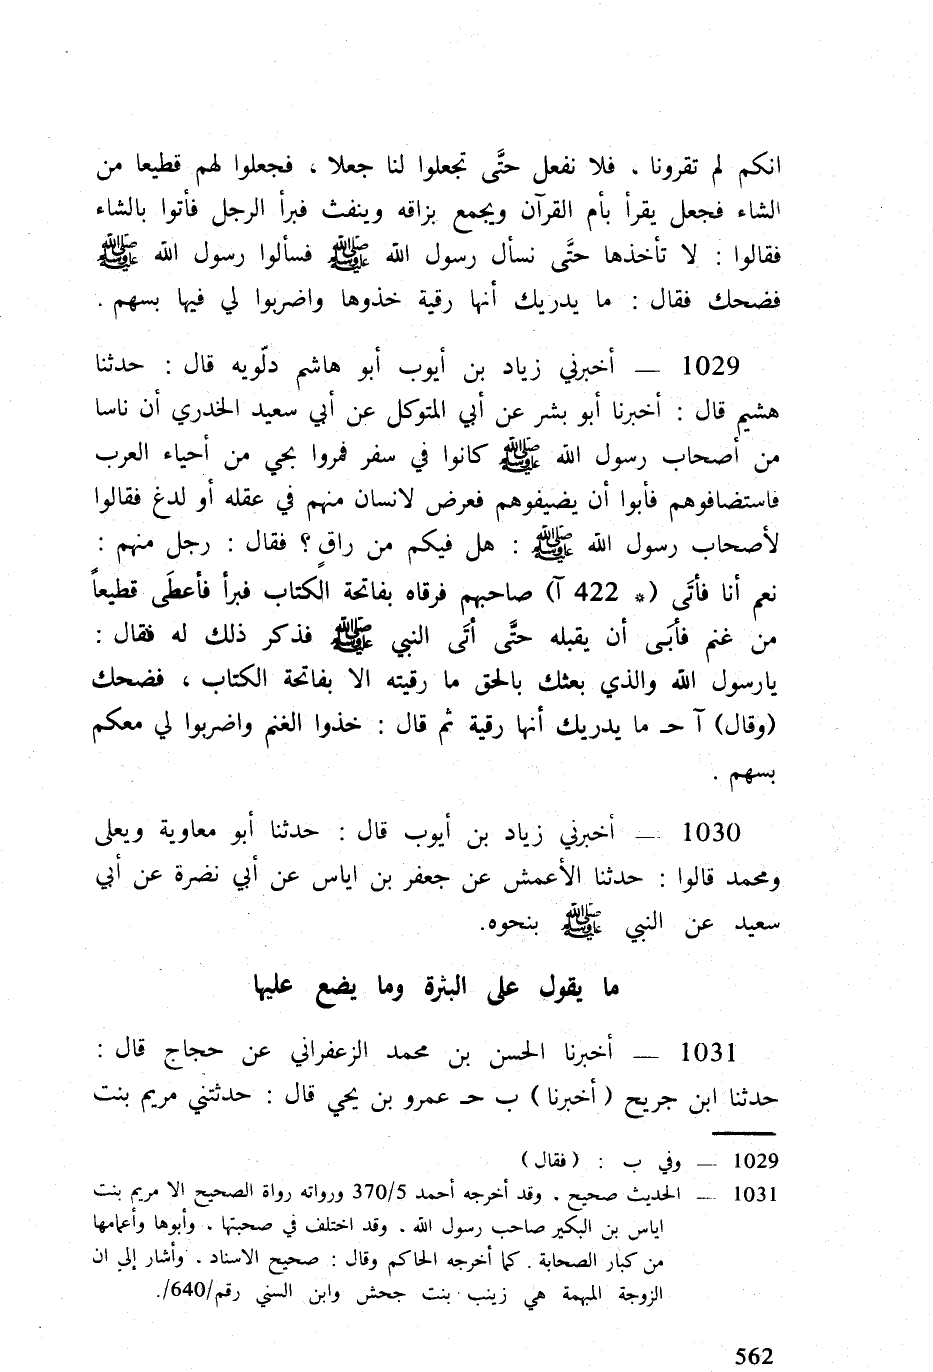 انكم لم تقرونا . فلا نفعل حتَّى تجعلوا لنا جعلا ، فجعلوا لهم قطيعا من
الشاء فجعل يقرأ بأم القرآن ويجمع بزاقه وينفث فبرأ الرجل فأتوا بالشاء
فقالوا : لا تأخذها حتَّى نسأل رسول الله ﷺ فسألوا رسول الله ﷺ
فضحك فقال : ما يدريك أنها رقية خذوها واضربوا لي فيها بسهم .
1029 — أخبرني زياد بن أيوب أبو هاشم دلّويه قال : حدثنا
هشيم قال : أخبرنا أبو بشر عن أبي المتوكل عن أبي سعيد الخدري أن ناسا
من أصحاب رسول الله ﷺ كانوا في سفر فمروا بحي من أحياء العرب
فاستضافوهم فأبوا أن يضيفوهم فعرض لانسان منهم في عقله أو لدغ فقالوا
لأصحاب رسول الله ﷺ : هل فيكم من راقٍ ؟ فقال : رجل منهم :
نعم أنا فأتَى (* 422 آ) صاحبهم فرقاه بفاتحة الكتاب فبرأ فأعطَى قطيعاً
من غنم فأبَى أن يقبله حتَّى أتَى النبي ﷺ فذكر ذلك له فقال :
يارسول الله والذي بعثك بالحق ما رقيته الا بفاتحة الكتاب ، فضحك
(وقال) آ حـ ما يدريك أنها رقية ثم قال : خذوا الغنم واضربوا لي معكم
بسهم .
1030 — أخبرني زياد بن أيوب قال : حدثنا أبو معاوية ويعلى
ومحمد قالوا : حدثنا الأعمش عن جعفر بن اياس عن أبي نضرة عن أبي
سعيد عن النبي ﷺ بنحوه.
ما يقول على البثرة وما يضع عليها
1031 — أخبرنا الحسن بن محمد الزعفراني عن حجاج قال :
حدثنا ابن جريج (أخبرنا) ب حـ عمرو بن يحي قال : حدثتني مريم بنت
1029 — وفي ب : (فقال)
1031 — الحديث صحيح . وقد أخرجه أحمد 370/5 ورواته رواة الصحيح الا مريم بنت
اياس بن البكير صاحب رسول الله . وقد اختلف في صحبتها . وأبوها وأعمامها
من كبار الصحابة . كما أخرجه الحاكم وقال : صحيح الاسناد . وأشار إلى ان
الزوجة المبهمة هي زينب بنت جحش وابن السني رقم/640/.
562